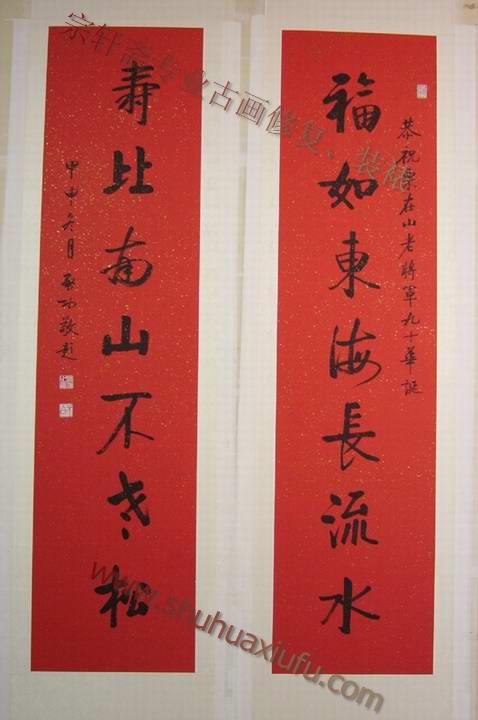 恭祝栗在山老將軍九十華誕
福如東海長流水
寿比南山不老松
甲申冬月
启功敬题
宗轩斋专业古画修复、装裱
www.shuhuaxiufu.com